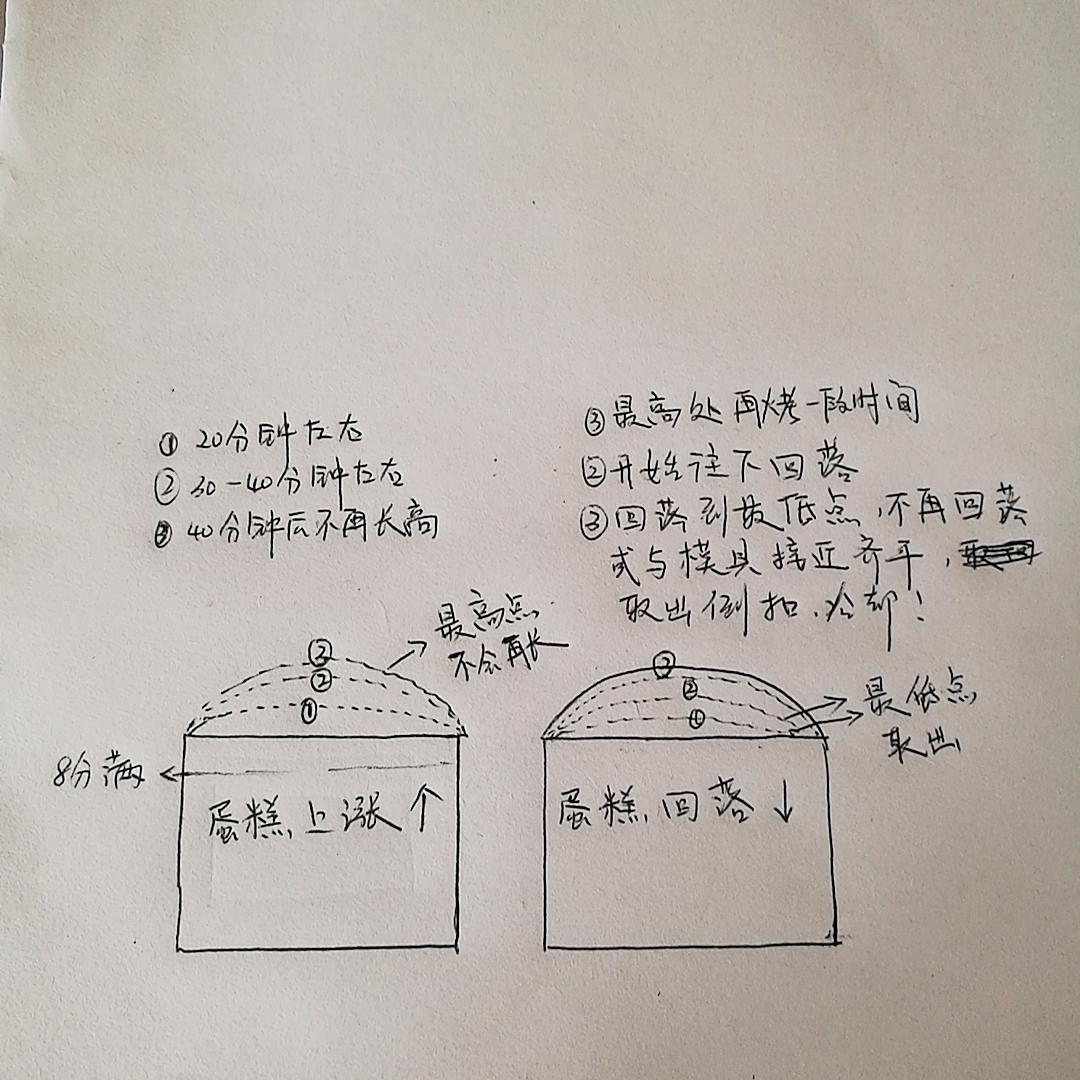 ① 20分钟左右
② 30-40分钟左右
③ 40分钟后不再长高
③最高处再烤一段时间
②开始往下回落
③回落到最低点,不再回落
或与模具接近齐平,
取出倒扣、冷却!
最高点
不会再长
③
②
①
8分满
蛋糕上涨↑
③
②
①
最低点
取出
蛋糕回落↓